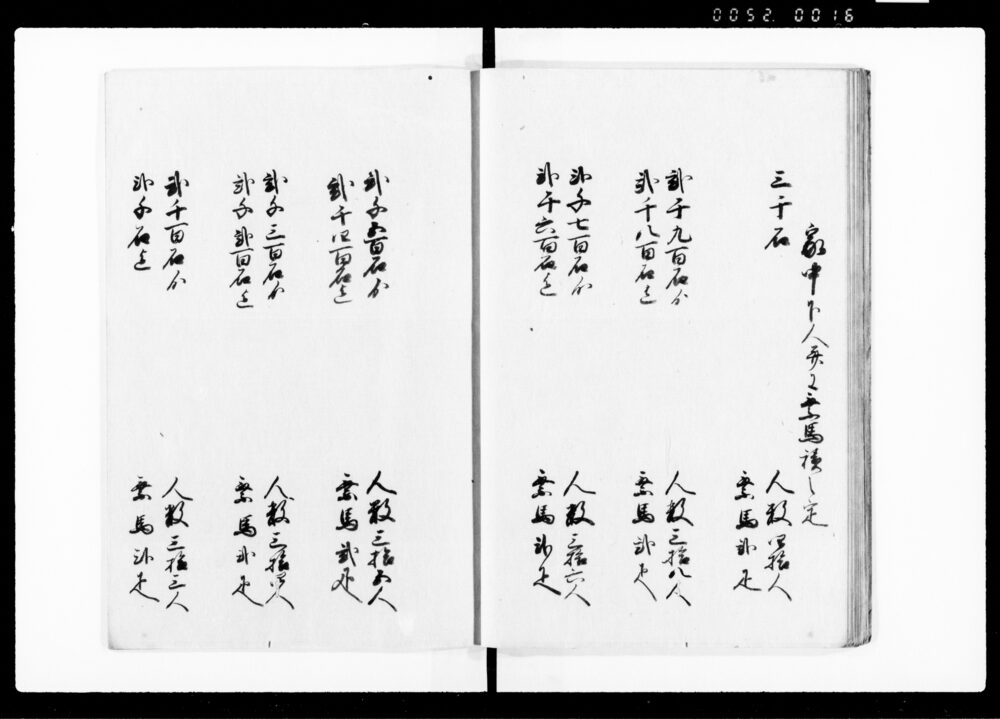 0052 0016
家中下人并乗馬積之定
三千石
人数四拾人
乗馬弐疋
弐千九百石ゟ
弐千八百石迄
人数三拾八人
乗馬弐疋
弐千七百石ゟ
弐千六百石迄
人数三拾六人
乗馬弐疋
弐千五百石ゟ
弐千四百石迄
人数三拾五人
乗馬弐疋
弐千三百石ゟ
弐千弐百石迄
人数三拾四人
乗馬弐疋
弐千百石ゟ
弐千石迄
人数三拾三人
乗馬弐疋